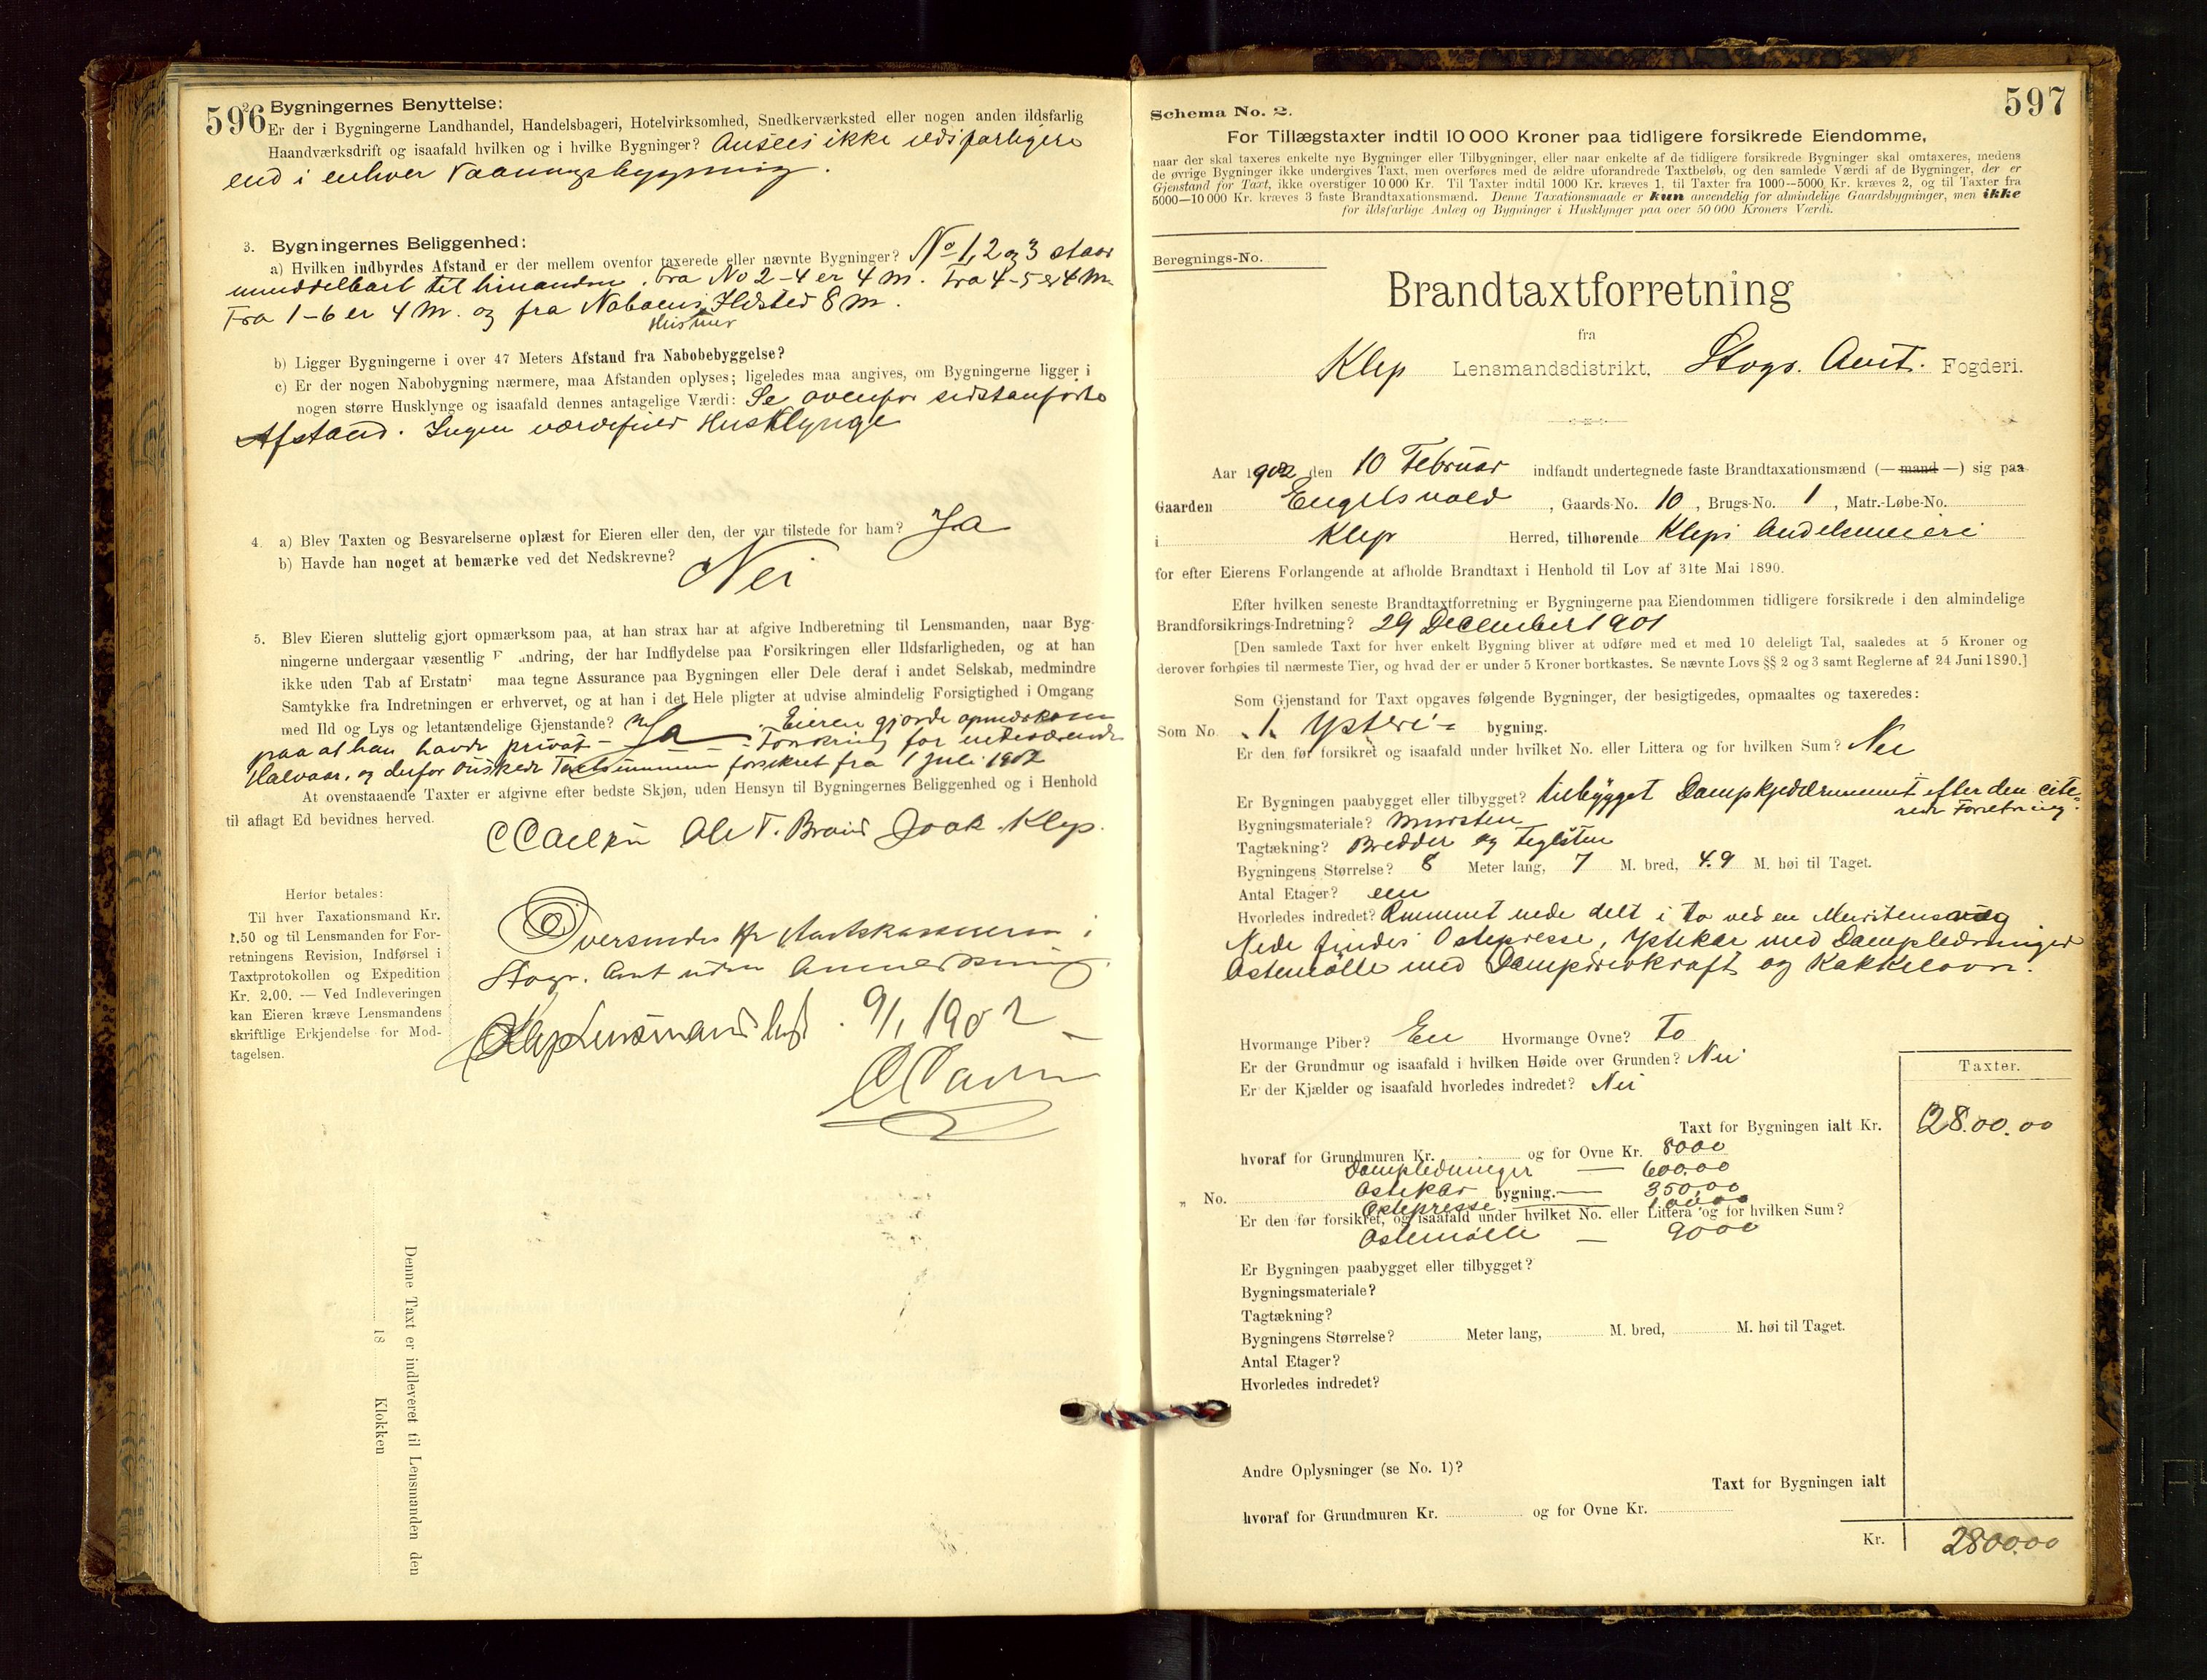 596
2. Bygningernes Benyttelse:
Er der i Bygningerne Landhandel, Handelsbageri, Hotelvirksomhed, Snedkerværksted eller nogen anden ildsfarlig
Haandværksdrift og isaafald hvilken og i hvilke Bygninger? Ansees ikke ildsfarligere
end i enhver Vaaningsbygning.
3. Bygningernes Beliggenhed:
a) Hvilken indbyrdes Afstand er der mellem ovenfor taxerede eller nævnte Bygninger? No 1, 2 og 3 staar
umiddelbart til hinanden. Fra No 2-4 er 4 m. Fra 4-5 er 4 m.
Fra 1-6 er 4 m. og fra Naboens Ildsted 8 m.
Husmur
b) Ligger Bygningerne i over 47 Meters Afstand fra Nabobebyggelse?
c) Er der nogen Nabobygning nærmere, maa Afstanden oplyses; ligeledes maa angives, om Bygningerne ligger i
nogen større Husklynge og isaafald dennes antagelige Værdi: Se ovenfor sidstanførte
Afstand. Ingen værdefuld Husklynge
4. a) Blev Taxten og Besvarelserne oplæst for Eieren eller den, der var tilstede for ham? Ja
b) Havde han noget at bemærke ved det Nedskrevne? Nei
5. Blev Eieren sluttelig gjort opmærksom paa, at han strax har at afgive Indberetning til Lensmanden, naar Byg-
ningerne undergaar væsentlig F andring, der har Indflydelse paa Forsikringen eller Ildsfarligheden, og at han
ikke uden Tab af Erstatn maa tegne Assurance paa Bygningen eller Dele deraf i andet Selskab, medmindre
Samtykke fra Indretningen er erhvervet, og at han i det Hele pligter at udvise almindelig Forsigtighed i Omgang
med Ild og Lys og letantændelige Gjenstande? Ja. Eieren gjorde opmærksom
paa at han havde privat Forsikring for indeværende
Halvaar, og derfor ønskede Taxtsummen forsikret fra 1 Juli 1902
At ovenstaaende Taxter er afgivne efter bedste Skjøn, uden Hensyn til Bygningernes Beliggenhed og i Henhold
til aflagt Ed bevidnes herved.
Ole T. Braud Joak. Klep.
Herfor betales:
Til hver Taxationsmand Kr.
1.50 og til Lensmanden for For-
retningens Revision, Indførsel i
Taxtprotokollen og Expedition
Kr. 2.00. — Ved Indleveringen
kan Eieren kræve Lensmandens
skriftlige Erkjendelse for Mod-
tagelsen.
Oversendes Hr Amtskassereren i
Stav. Amt uden Anmerkning.
Klep Lensmandsbest. 9/1 1902
Denne Taxt er indleveret til Lensmanden den
18 Klokken
597
Schema No. 2.
For Tillægstaxter indtil 10 000 Kroner paa tidligere forsikrede Eiendomme,
naar der skal taxeres enkelte nye Bygninger eller Tilbygninger, eller naar enkelte af de tidligere forsikrede Bygninger skal omtaxeres, medens
de øvrige Bygninger ikke undergives Taxt, men overføres med de ældre uforandrede Taxtbeløb, og den samlede Værdi af de Bygninger, der er
Gjenstand for Taxt, ikke overstiger 10 000 Kr. Til Taxter indtil 1000 Kr. kræves 1, til Taxter fra 1000—5000 Kr. kræves 2, og til Taxter fra
5000—10 000 Kr. kræves 3 faste Brandtaxationsmænd. Denne Taxationsmaade er kun anvendelig for almindelige Gaardsbygninger, men ikke
for ildsfarlige Anlæg og Bygninger i Husklynger paa over 50 000 Kroners Værdi.
Beregnings-No.
Brandtaxtforretning
fra
Klep Lensmandsdistrikt, Stavgr. Amt. Fogderi.
Aar 1902 den 10 Februar indfandt undertegnede faste Brandtaxationsmænd (— mand —) sig paa
Gaarden Engelsvold, Gaards-No. 10, Brugs-No. 1, Matr.-Løbe-No.
i Klep Herred, tilhørende Kleps Andelsmeieri
for efter Eierens Forlangende at afholde Brandtaxt i Henhold til Lov af 31te Mai 1890.
Efter hvilken seneste Brandtaxtforretning er Bygningerne paa Eiendommen tidligere forsikrede i den almindelige
Brandforsikrings-Indretning? 29 December 1901
[Den samlede Taxt for hver enkelt Bygning bliver at udføre med et med 10 deleligt Tal, saaledes at 5 Kroner og
derover forhøies til nærmeste Tier, og hvad der er under 5 Kroner bortkastes. Se nævnte Lovs §§ 2 og 3 samt Reglerne af 24 Juni 1890.]
Som Gjenstand for Taxt opgaves følgende Bygninger, der besigtigedes, opmaaltes og taxeredes:
Som No. 1. Ysteri- bygning.
Er den før forsikret og isaafald under hvilket No. eller Littera og for hvilken Sum? Nei
Er Bygningen paabygget eller tilbygget? tilbygget Dampkjedelrummet efter den cite-
rede Forretning.
Bygningsmateriale? Mursten
Tagtækning? Bredder og Teglsten
Bygningens Størrelse? 8 Meter lang, 7 M. bred, 4.9 M. høi til Taget.
Antal Etager? een
Hvorledes indredet? Rummet nede delt i to ved en Murstensvæg
Nede findes Ostepresse, Ystekar med Dampledninger
Ostemølle med Dampdrivkraft og Kakkelovn.
Hvormange Piber? En Hvormange Ovne? To
Er der Grundmur og isaafald i hvilken Høide over Grunden? Nei
Er der Kjælder og isaafald hvorledes indredet? Nei
Taxter.
Taxt for Bygningen ialt Kr. 2800.00
hvoraf for Grundmuren Kr. og for Ovne Kr. 8000
Dampledninger — 600.00
„ No. Ostekar bygning. — 350.00
Ostepresse — 100.00
Er den før forsikret, og isaafald under hvilket No. eller Littera og for hvilken Sum?
Ostemølle — 9000
Er Bygningen paabygget eller tilbygget?
Bygningsmateriale?
Tagtækning?
Bygningens Størrelse? Meter lang, M. bred, M. høi til Taget.
Antal Etager?
Hvorledes indredet?
Andre Oplysninger (se No. 1)?
Taxt for Bygningen ialt
hvoraf for Grundmuren Kr. og for Ovne Kr.
Kr. 2800.00